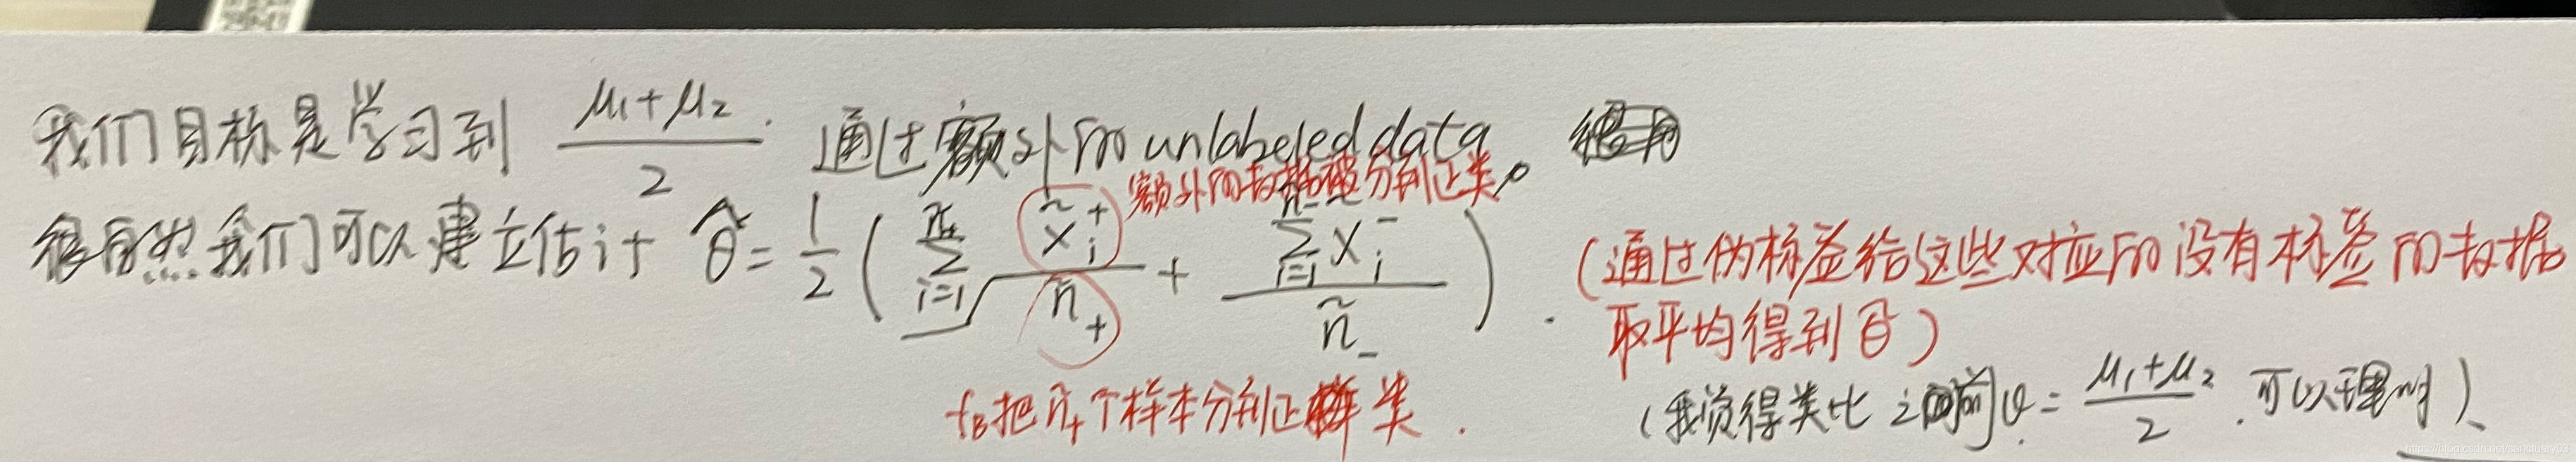 我们目标是学习到 (μ₁+μ₂)/2. 通过额外的 unlabeled data。
额外的数据被分到正类
很自然我们可以建立估计 θ̂ = 1/2 ( Σ_{i=1}^{ñ₊} X̃ᵢ⁺ / ñ₊ + Σ_{i=1}^{ñ₋} Xᵢ⁻ / ñ₋ ).
(通过伪标签给这些对应的没有标签的数据
取平均得到 θ̂)
f_B把ñ₊个样本分到正类.
(我觉得类比之前 θ = (μ₁+μ₂)/2. 可以理解)、